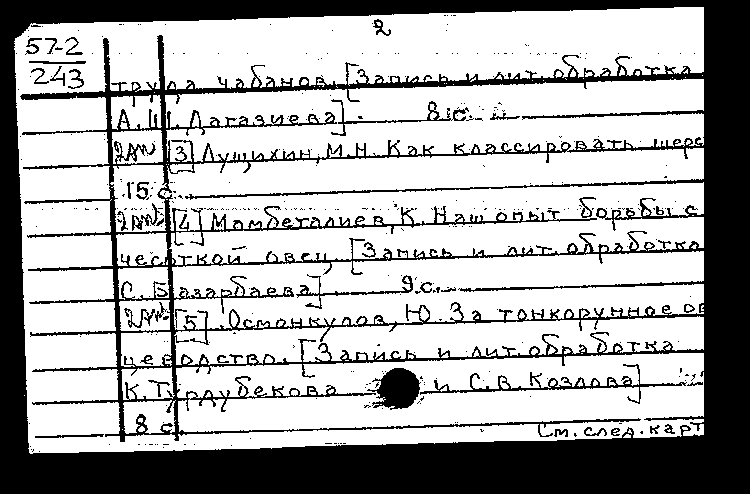 2
57-2
243
труда чабанов. [Запись и лит. обработка
А.Ш. Дагазиева]. 8 с.
[3] Лущихин, М.Н. Как классировать шерс
15 с.
[4] Мамбеталиев, К. Наш опыт борьбы с
чесоткой овец. [Запись и лит. обработка
С. Базарбаева]. 9 с.
[5] Осмонкулов, Ю. За тонкорунное ов
цеводство. [Запись и лит. обработка
К. Турдубекова и С.В. Козлова]
8 с.
См. след. карт